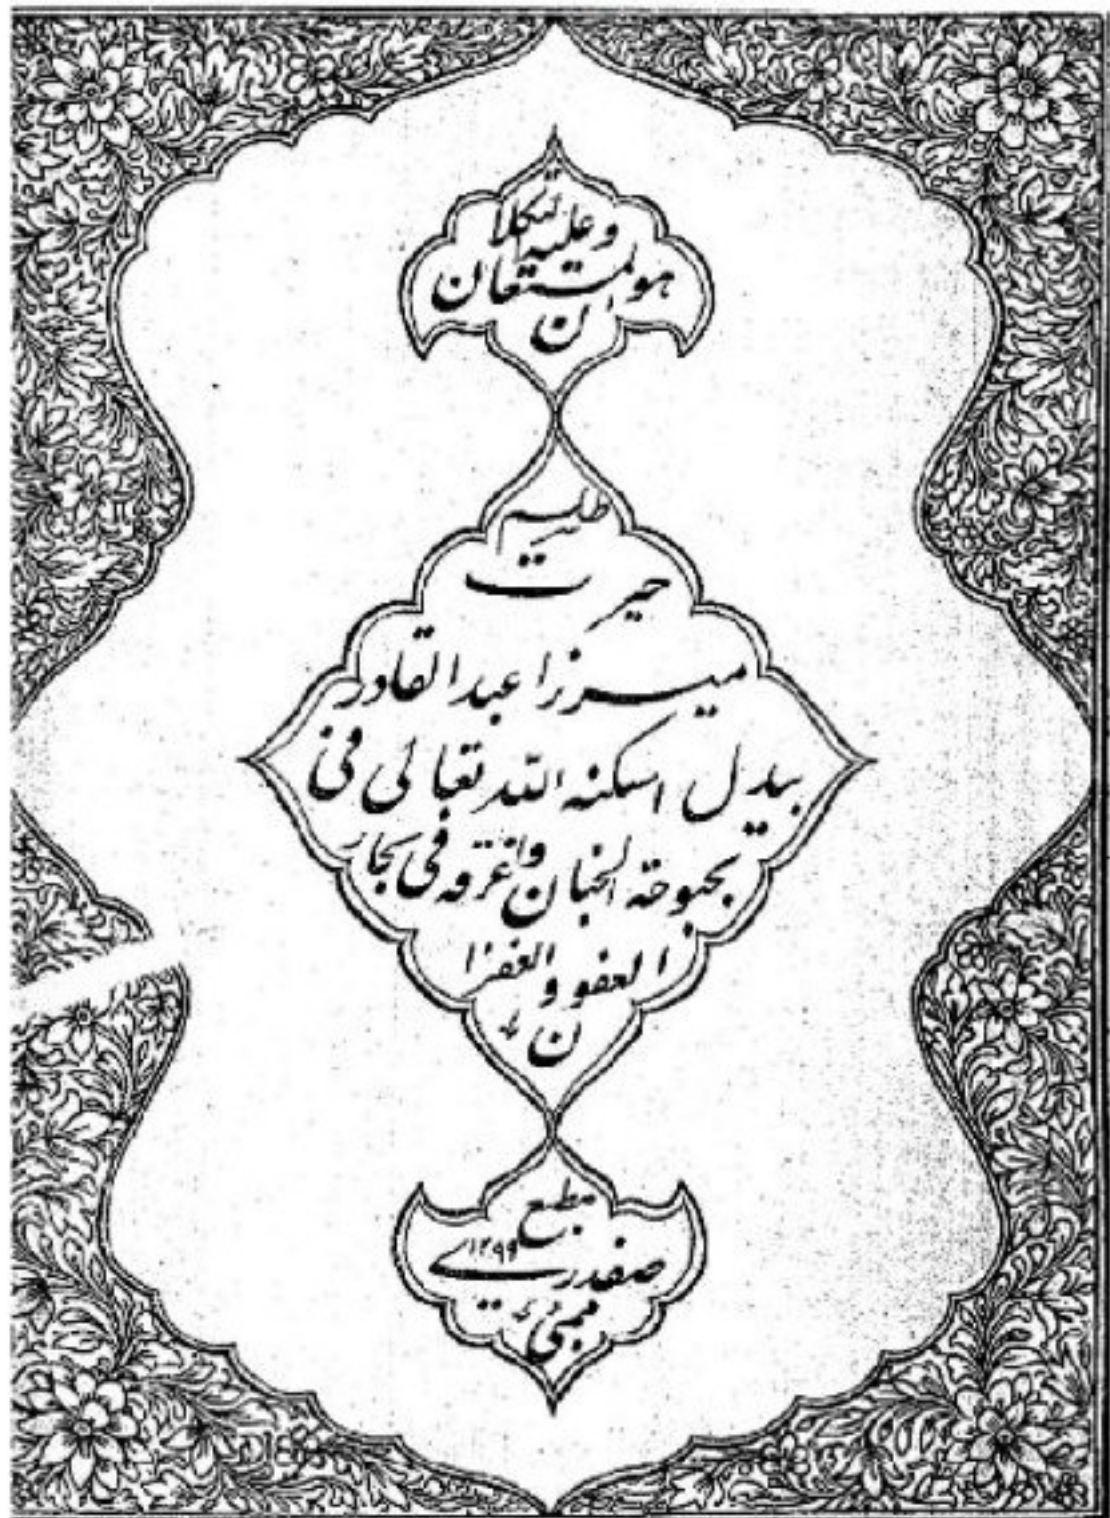 هو المستعان
وعلیه التکلا
ن
طلسم
حیرت
میرزا عبدالقادر
بیدل اسکنه الله تعالی فی
بحبوحته الجنان و اغرقه فی بحار
العفو و الغفرا
ن
مطبع
صفدری ۱۲۹۹
بمبئی